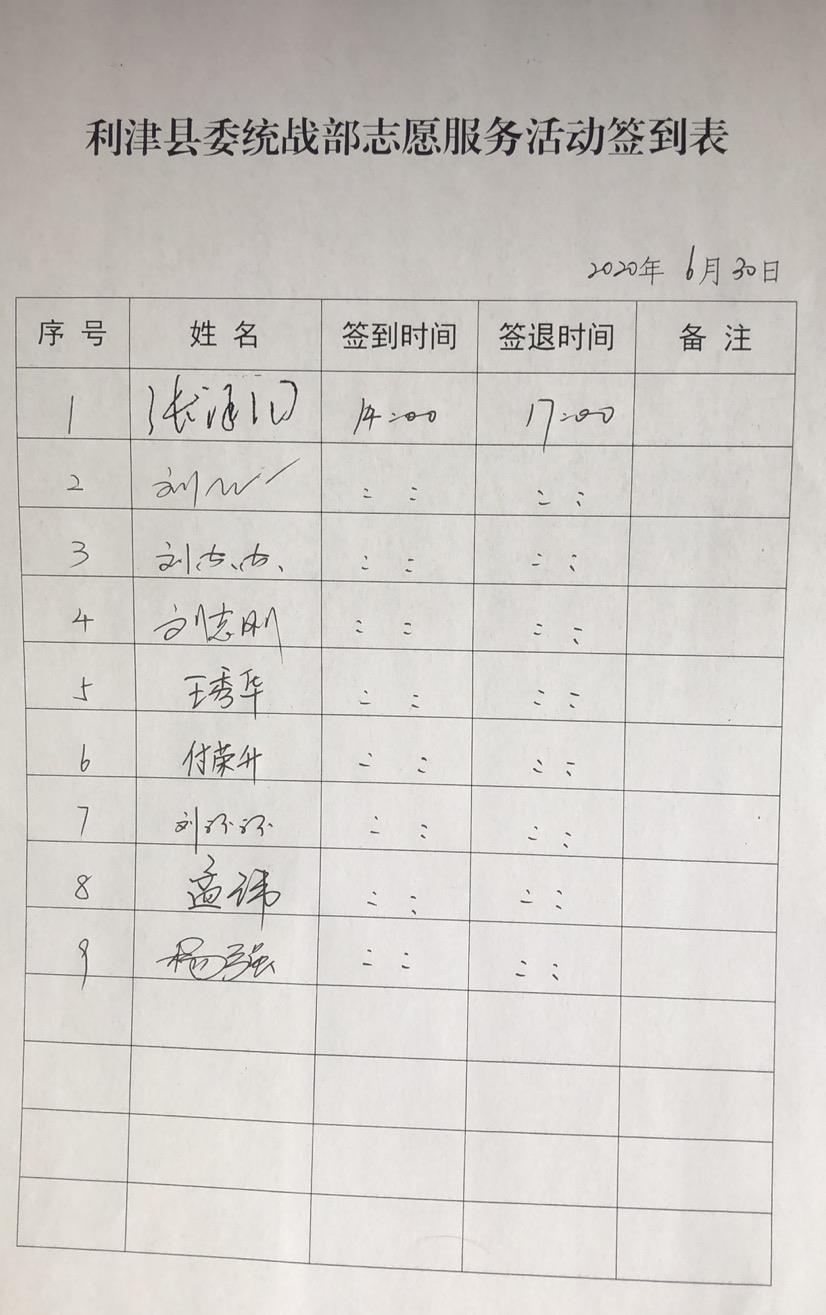 利津县委统战部志愿服务活动签到表
2020年 6月 30日
序号 姓名 签到时间 签退时间 备注
1 张 14:00 17:00
2 刘 : : : :
3 刘 : : : :
4 刘志刚 : : : :
5 王秀华 : : : :
6 付荣升 : : : :
7 刘环环 : : : :
8 孟伟 : : : :
9 杨强 : : : :